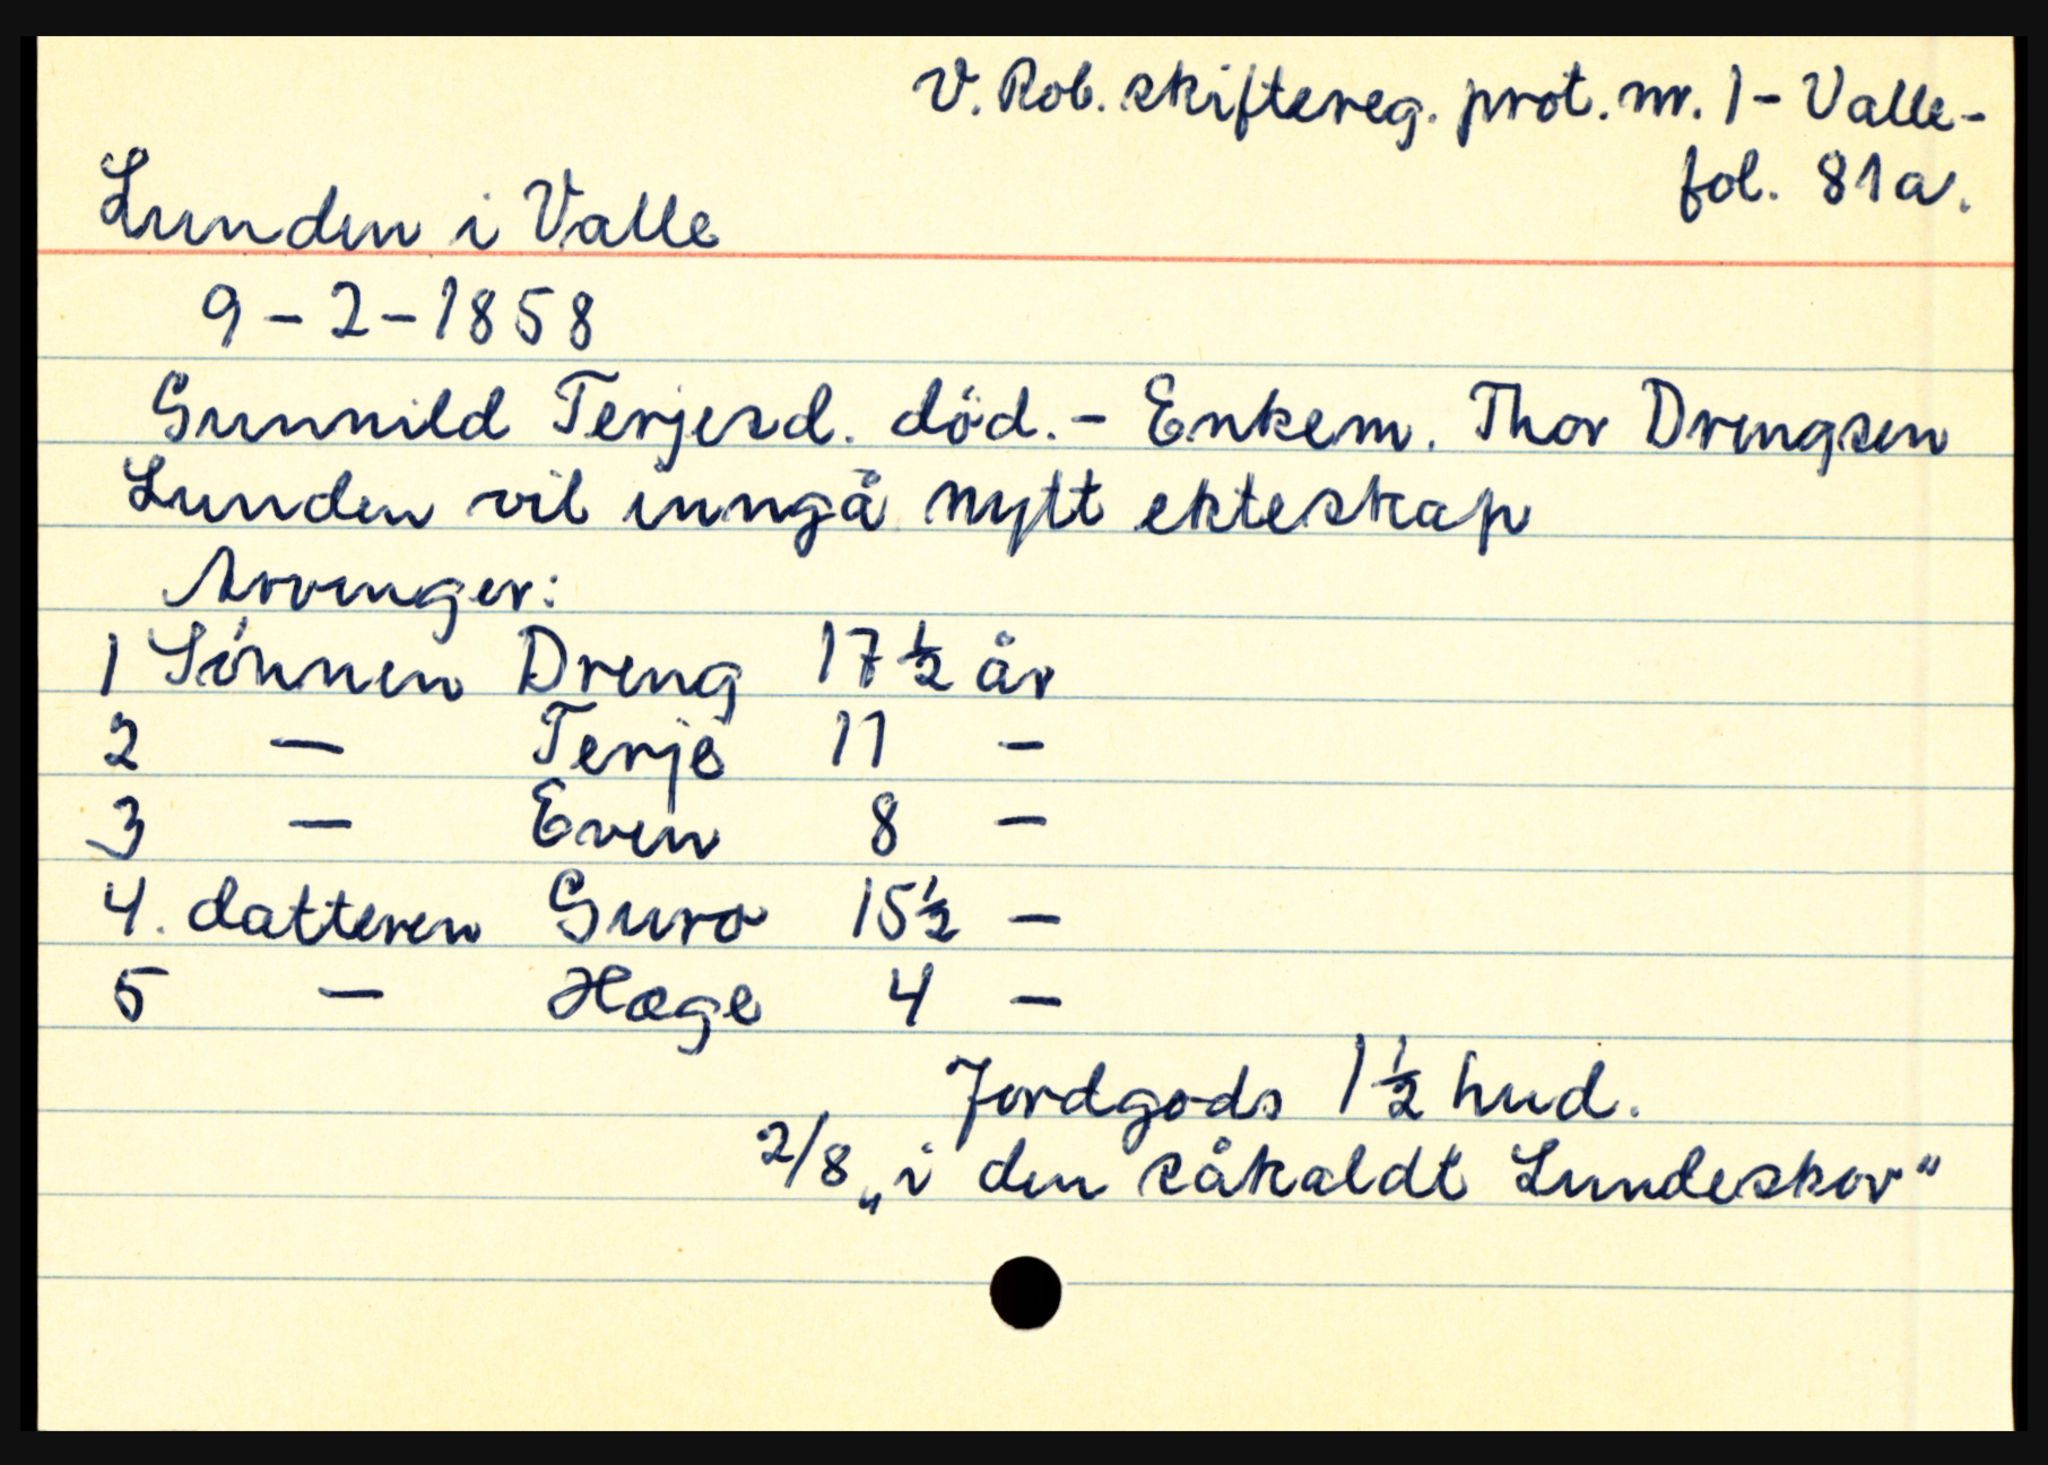 V. Rob. skiftereg. prot. nr. 1 - Valle -
fol. 81a.
Lunden i Valle
9 - 2 - 1858
Gunnild Terjesd. död. - Enkem. Thor Drengsen
Lunden vil inngå nytt ekteskap
Arvinger:
1 Sónnen Dreng 17 ½ år
2 — Terje 11 -
3 — Even 8 -
4. datteren Guro 15½ -
5 — Hæge 4 -
Jordgods 1 ½ hud.
2/8 „i den såkaldt Lundeskov"